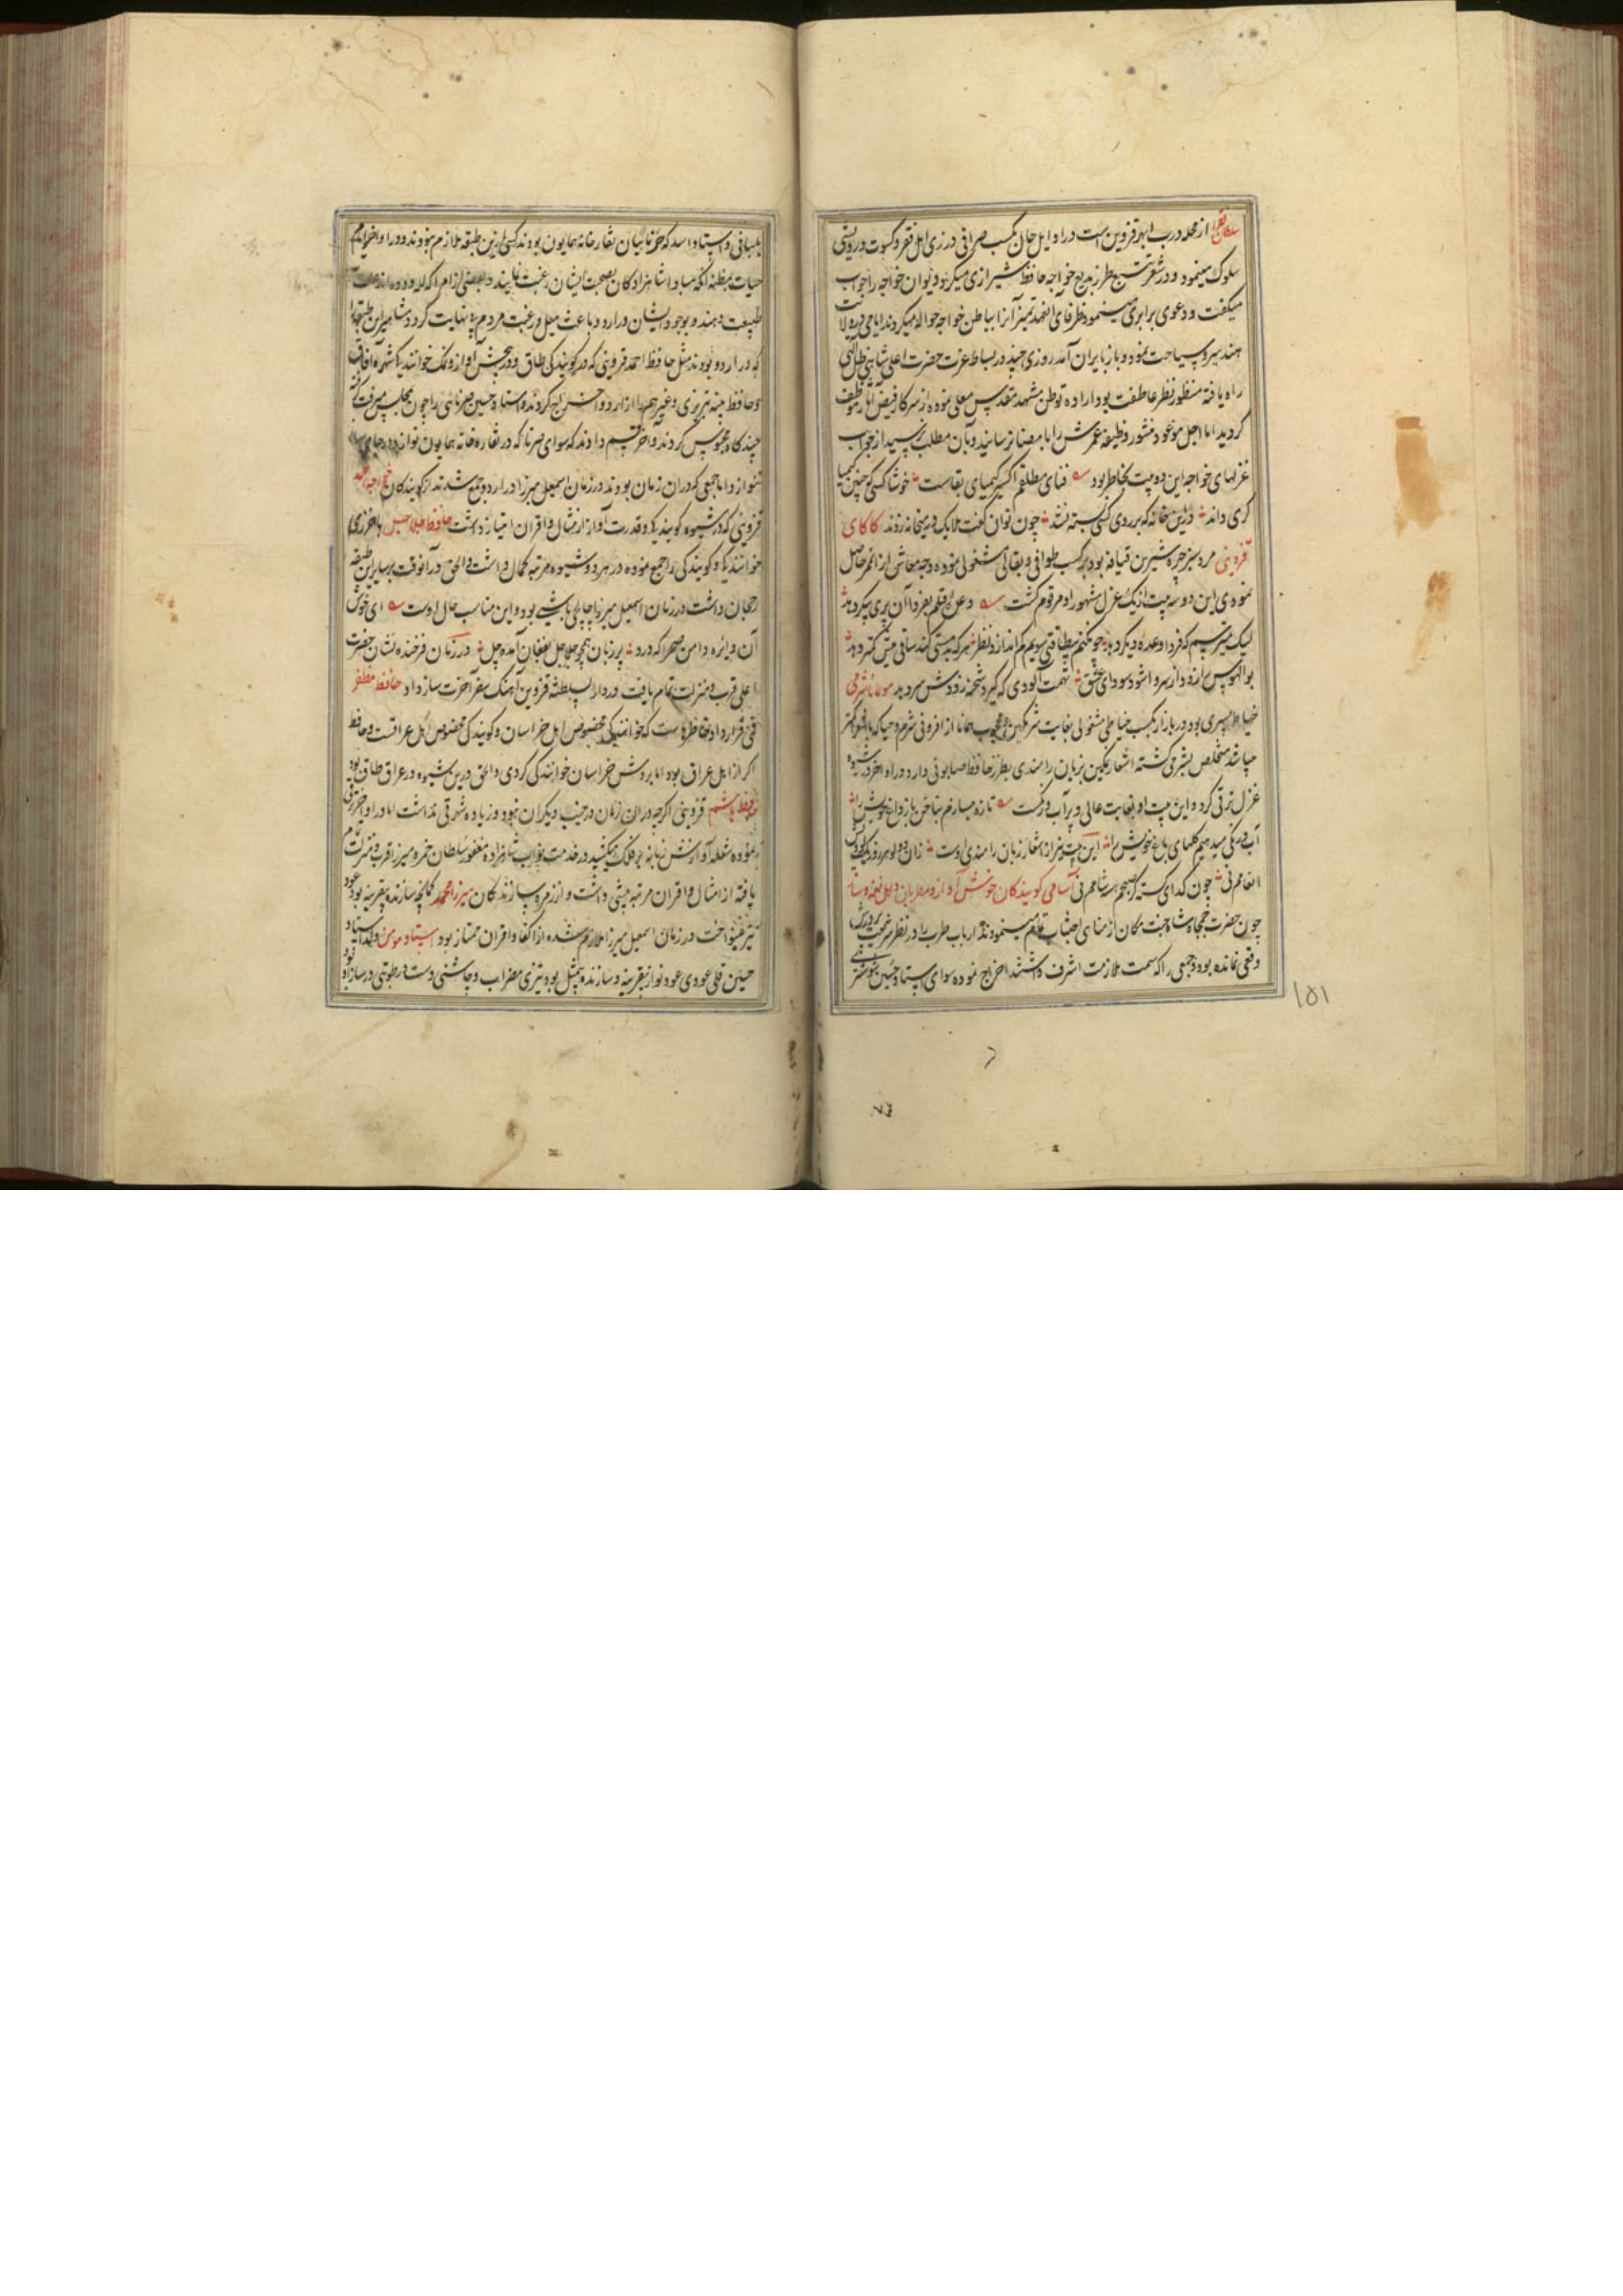 سلطان فقرا از محله درب ابهر قزوین است در اوایل حال بکسب صرافی در زی اهل فقر و کسوت درویشی
سلوک مینمود و در شعر تتبع طرز بدیع خواجه حافظ شیرازی میکرد و دیوان خواجه را جواب
میگفت و دعوی برابری مینمود ظرفا آن را بباطن خواجه حواله میکردند ایامی در ولایت
هند سیر و سیاحت نمود و باز بایران آمد روزی چند در بساط عزت حضرت اعلی شاهی ظل اللهی
راه یافته منظور نظر عاطفت بود اراده توطن مشهد مقدس معلی نموده از سرکار فیض آثار موظف
گردید اما اجل موعود منشور وظیفه عمرش را بامضا نرسانید و بآن مطلب نرسید از جواب
غزلهای خواجه این دو بیت بخاطر بود فنای مطلقم اکسیر کیمیای بقاست خوشا کسی که چنین کیمیا
گری داند در این خانه که بر روی کسی بسته نشد چون توان گفت ملایک در میخانه زدند کاکای
قزوینی مرد سبز چهره شیرین قیافه بود بکسب طوافی و بقالی مشغولی نموده وجه معاش از آن ممر حاصل
نمودی این دو سه بیت از یک غزل مشهور او مرقوم گشت وعده قتلم بفردا آن پری پیکر دهد
لیک میترسم که فردا وعده دیگر دهد چو گفتم بیطاقتی سویم کم اندازد نظر هر که بدمستی کند ساقی میش کمتر دهد
بوالهوس را زود از سر وا شود سودای عشق تهمت آلودی که گیرد شحنه زودش سر دهد مولانا شرمی
خیاط پسری بود در بازار بکسب خیاطی مشغولی بغایت شرمگین و محجوب همانا از افزونی شرم و حیا که با شعرا کمتر
میباشد متخلص بشرمی گشته اشعار نمکین بزبان رامندی بطرز حافظ صابونی دارد و در اواخر در شیوه
غزل ترقی کرد و این بیت او بغایت عالی و پر آب و رنگست تازه میسازم بناخن باز داغ خویش را
آب و رنگی میدهم گلهای باغ خویش را این بیت نیز از اشعار زبان رامندی اوست
چون گدای اسامی گویندگان خوش آواز و مطربان و اهل نغمه و ساز
چون حضرت جمجاه شاه جنت مکان از مناهی اجتناب تمام مینمودند ارباب طرب را در نظر شریف
وقعی نمانده بود و جمعی را که سمت ملازمت اشرف داشتند اخراج نموده سوای استاد حسین شوشتری
۱۵۱
بلبانی و استاد اسد که سرنائیان نقاره‌خانه همایون بودند کسی ازین طبقه ملازم نبودند و در اواخر ایام
حیات بمظنه آنکه مبادا شاهزادگان بصحبت ایشان رغبت نمایند و بعضی از امرا که لله و دده اند
طبیعت دهند و بوجود ایشان در اردو باعث میل و رغبت مردم بمناهی گردد مشاهیر این طبقه را
که در اردو بودند مثل حافظ احمد قزوینی که در گویندگی طاق و در پیچش آواز و نمک خوانندگی شهره آفاق
و حافظ بنه تبریزی و غیرهم را از اردو اخراج کردند و استاد حسین سرنائی را چون بمجالس میرفت گرفته
چند گاه محبوس کردند و آخر قسم دادند که سوای سرنا که در نقاره خانه همایون نوازد در جای دیگر
ننوازد اما جمعی که در آن زمان بودند در زمان اسمعیل میرزا در اردو جمع شدند از گویندگان حافظ احمد
قزوینی که در شیوه گویندگی و قدرت آواز از امثال و اقران امتیاز داشت حافظ جلاجل باخرزی
خوانندگی و گویندگی را جمع نموده در هر دو شیوه مرتبه کمال داشت و الحق در آنوقت بر سایر این طبقه
رجحان داشت در زمان اسمعیل میرزا چالچی باشی بود و این مناسب حال اوست ای خوش
آن دایره دامن صحرا که درو پر زبان همچو جلاجل بفغان آمده چل در زمان فرخنده نشان حضرت
اعلی قرب و منزلت تمام یافت در دار السلطنه قزوین آهنگ سفر آخرت ساز داد حافظ مظفر
قمی قرارداد خاطرهاست که خوانندگی مخصوص اهل خراسان و گویندگی مخصوص اهل عراقست و حافظ
اگر از اهل عراق بود اما بروش خراسان خوانندگی کردی و الحق درین شیوه در عراق طاق بود
حافظ هاشم قزوینی اگرچه در آن زمان در جنب دیگران نبود و زیاده شهرتی نداشت اما در اواخر ترقی
نموده شعله آوازش زبانه بر فلک میکشید در خدمت نواب شاهزاده مغفور سلطان حمزه میرزا قرب و منزلت تمام
یافته از امثال و اقران مرتبه بیشی داشت و از زمره سازندگان میرزا محمد کمانچه سازنده بیقرینه بود عود
نیز میخواخت در زمان اسمعیل میرزا ملازم شده از اکفا و اقران ممتاز بود استاد مومن ولد استاد
حسین قلی عودی عود نواز بیقرینه و سازنده بیمثل بود تیزی مضراب و چاشنی دست و رطوبتی در ساز او بود